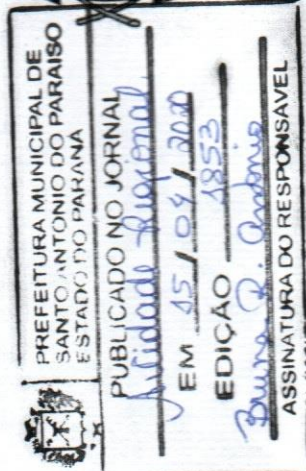 PREFEITURA MUNICIPAL DE
SANTO ANTONIO DO PARAISO
ESTADO DO PARANÁ
PUBLICADO NO JORNAL
Regional
EM 15 / 04 / 2020
EDIÇÃO 1853
Bruna R. Antônio
ASSINATURA DO RESPONSÁVEL